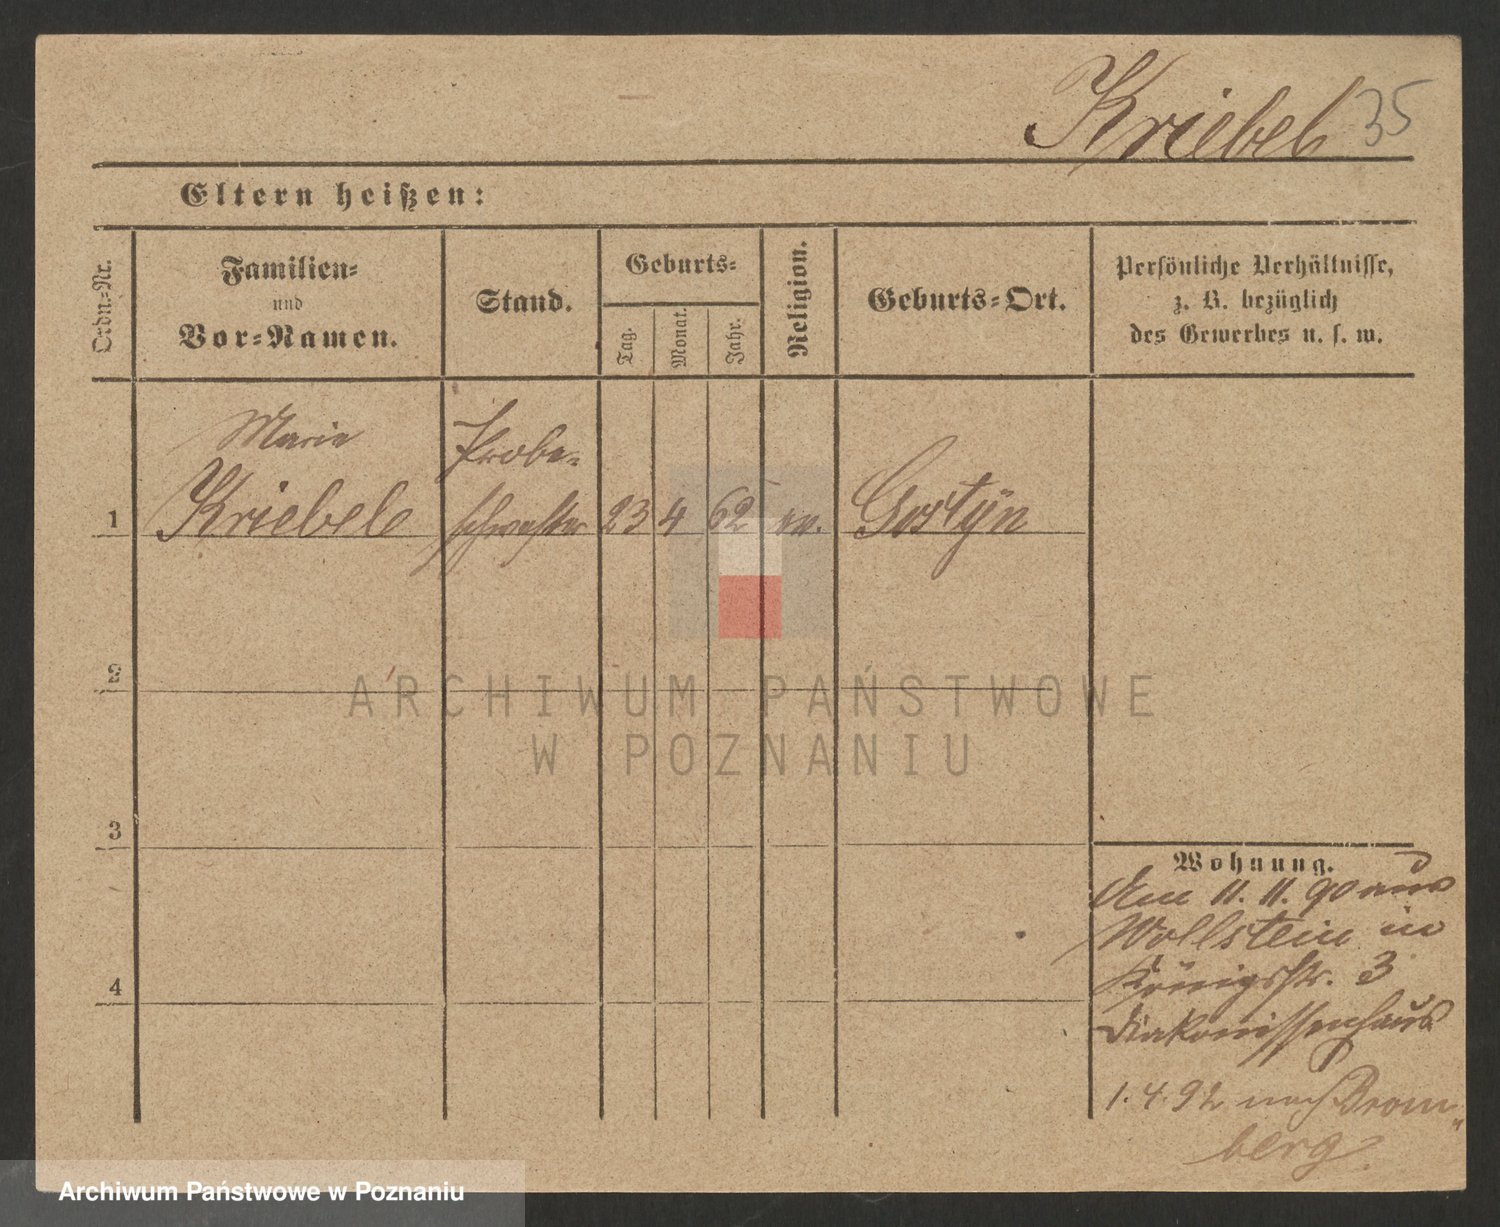 Kriebel 35
Eltern heißen:
Ordn-Nr.
Familien-
und
Vor-Namen.
Stand.
Geburts-
Tag.
Monat.
Jahr.
Religion.
Geburts-Ort.
Persönliche Verhältnisse,
z. B. bezüglich
des Gewerbes u. s. w.
Marie Probe-
1 Kriebel schwester 23 4 62 ev. Gostÿn
2
3
4
Wohnung.
Am 11. 11. 90 aus
Wollstein in
Königsstr. 3
Diakonissenhaus
1. 4. 92 nach Brom-
berg
ARCHIWUM PAŃSTWOWE
W POZNANIU
Archiwum Państwowe w Poznaniu